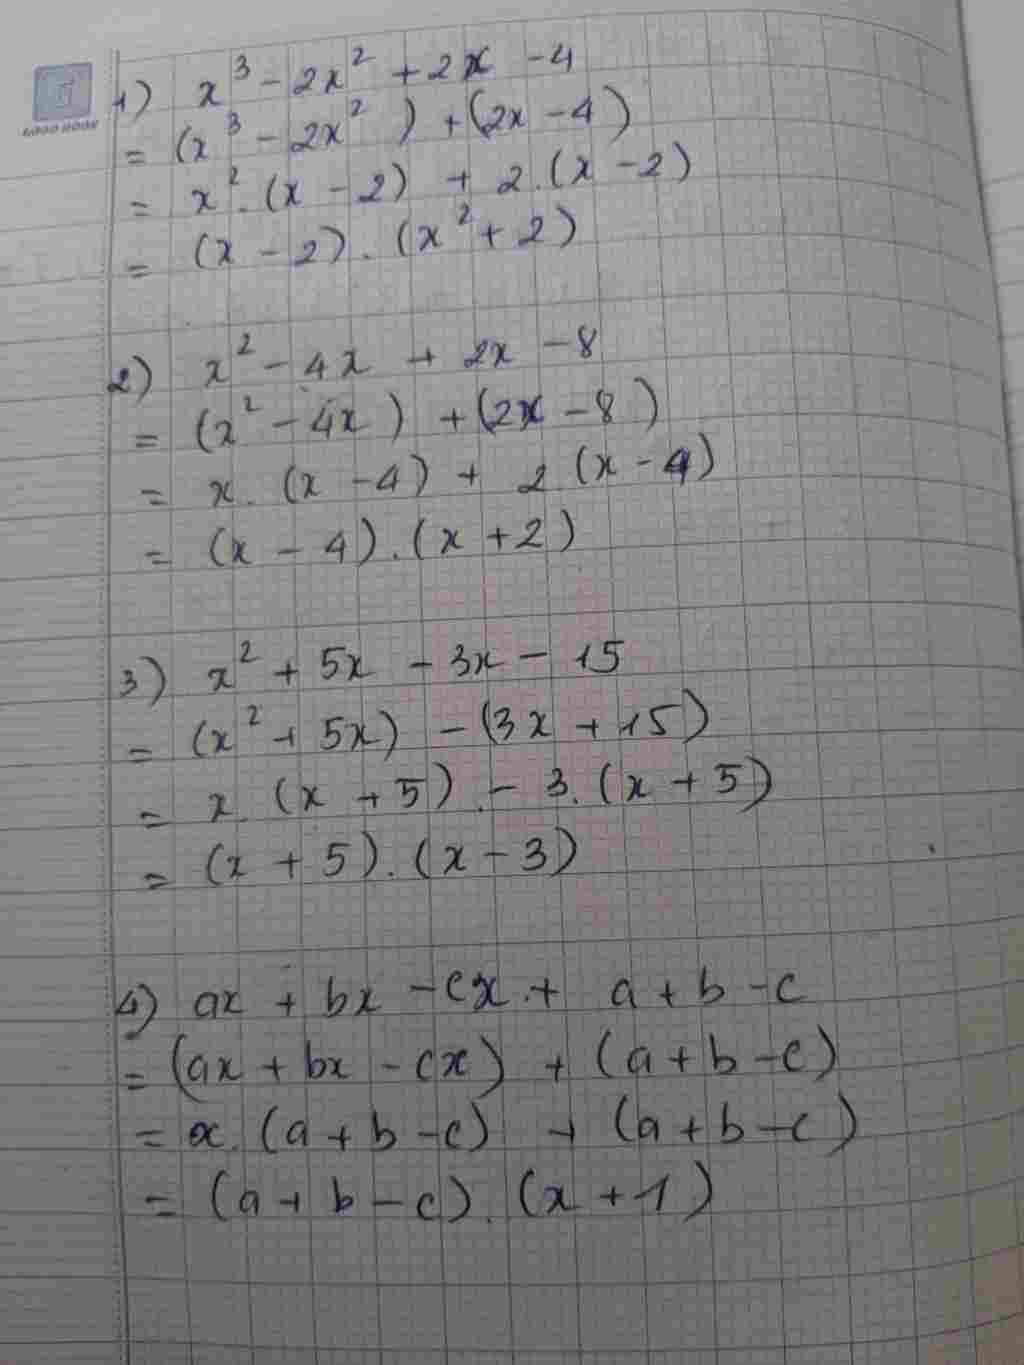 GOOD BOOK
1) x³ - 2x² + 2x - 4
= (x³ - 2x²) + (2x - 4)
= x².(x - 2) + 2.(x - 2)
= (x - 2).(x² + 2)
2) x² - 4x + 2x - 8
= (x² - 4x) + (2x - 8)
= x.(x - 4) + 2(x - 4)
= (x - 4).(x + 2)
3) x² + 5x - 3x - 15
= (x² + 5x) - (3x + 15)
= x.(x + 5) - 3.(x + 5)
= (x + 5).(x - 3)
4) ax + bx - cx + a + b - c
= (ax + bx - cx) + (a + b - c)
= x.(a + b - c) + (a + b - c)
= (a + b - c).(x + 1)